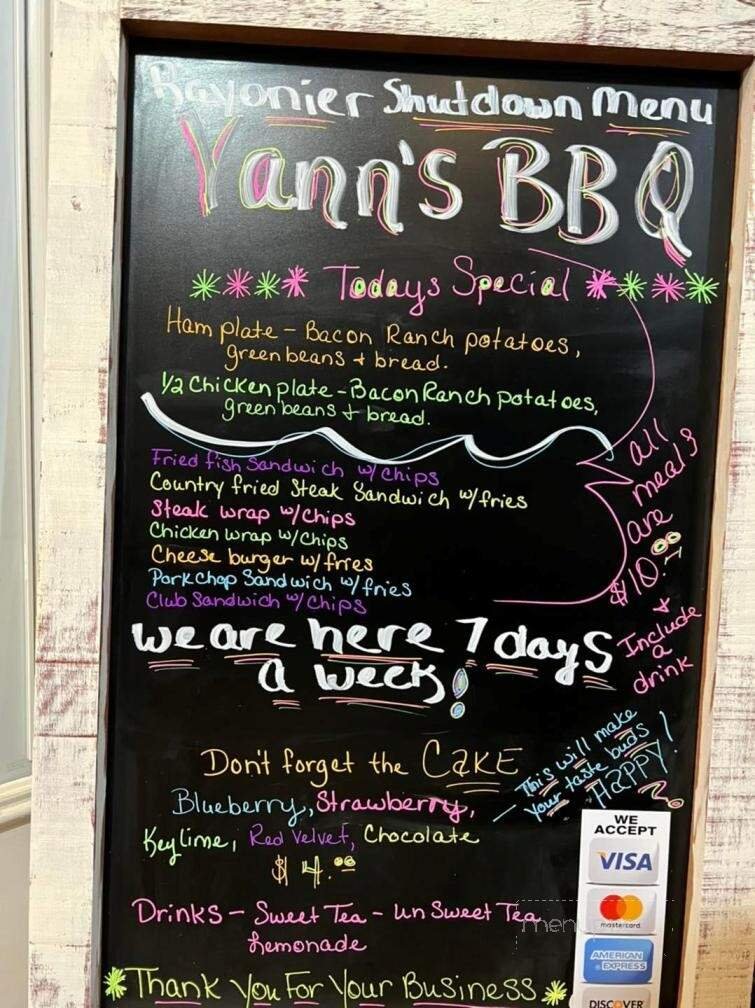 Rayonier Shutdown Menu
Yann's BBQ
Todays Special
Ham plate - Bacon Ranch potatoes,
green beans + bread.
1/2 Chicken plate - Bacon Ranch potatoes,
green beans + bread.
Fried fish Sandwich w/ chips
Country fried Steak Sandwich w/fries
Steak wrap w/chips
Chicken wrap w/chips
Cheese burger w/fries
Pork chop Sandwich w/fries
Club Sandwich w/chips
all
meals
are
$10.00
+
Include
a
drink
we are here 7 days
a week!
Don't forget the CAKE
Blueberry, Strawberry,
Keylime, Red Velvet, Chocolate
$ 4.00
- This will make
your taste buds
HAPPY!
Drinks - Sweet Tea - un Sweet Tea
Lemonade
Thank You For Your Business
WE
ACCEPT
VISA
mastercard
AMERICAN
EXPRESS
DISCOVER
menu